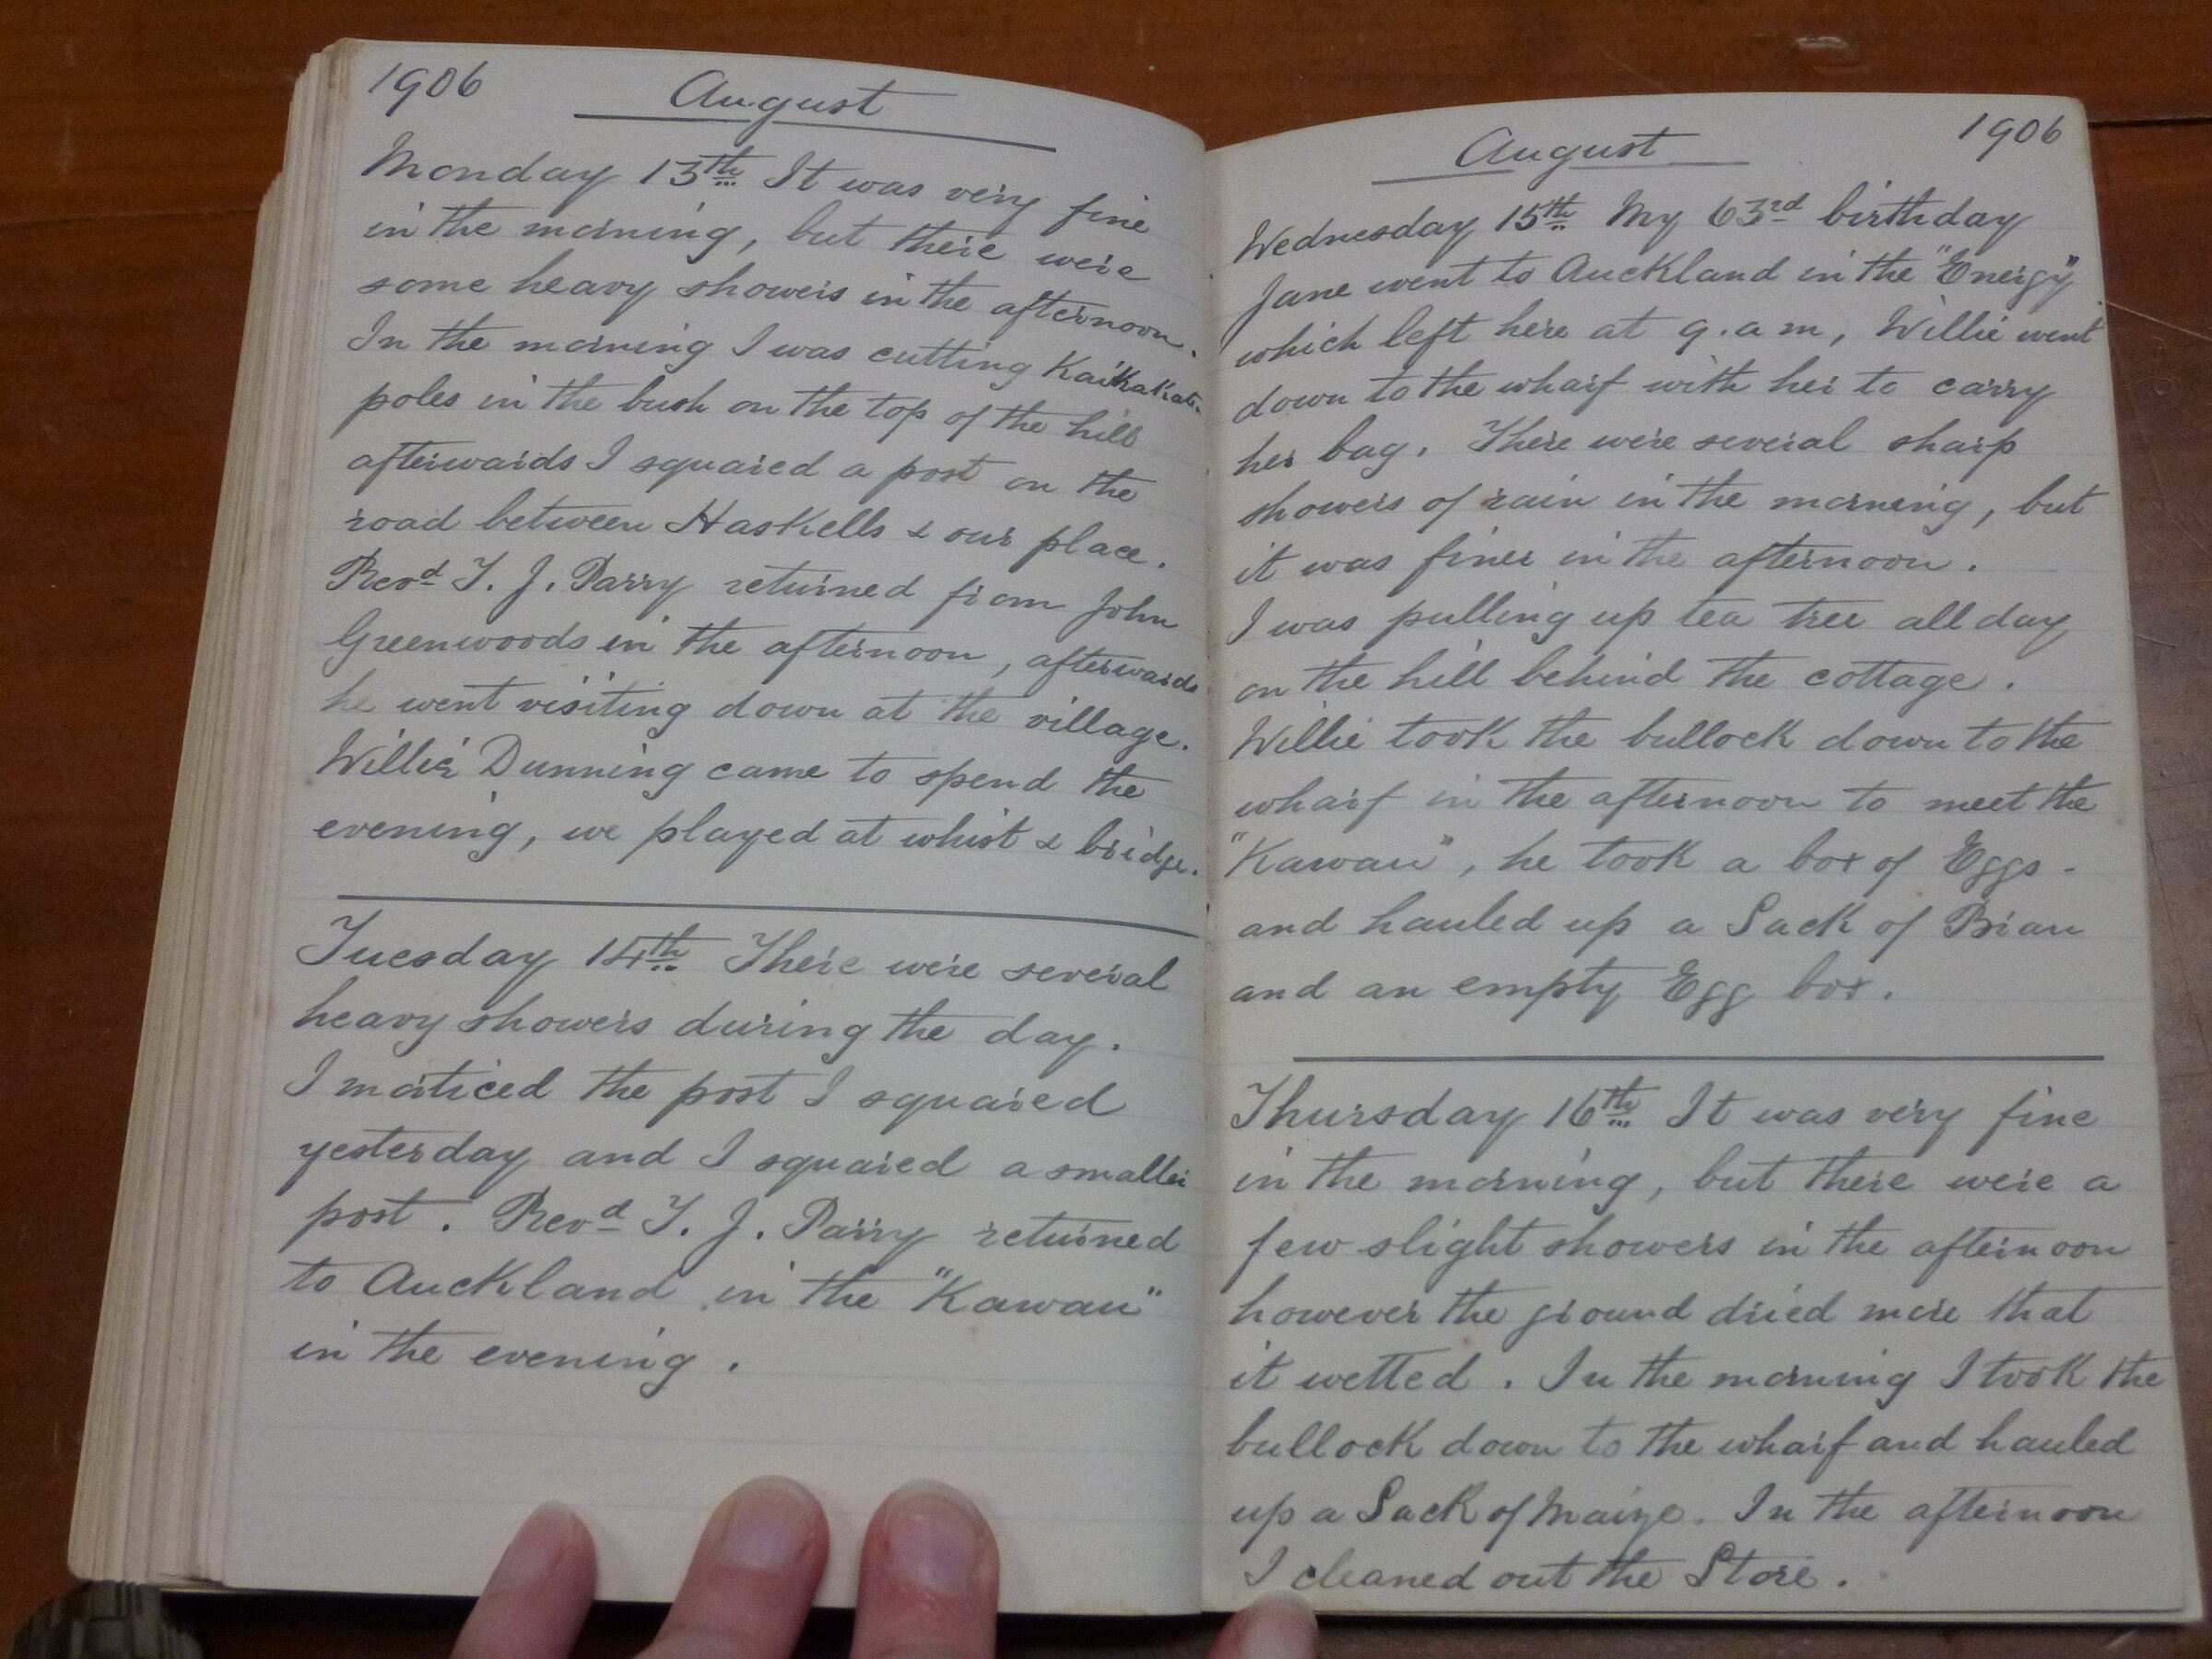 1906
August
Monday 13th It was very fine
in the morning, but there were
some heavy showers in the afternoon.
In the morning I was cutting
poles in the bush on the top of the hill
afterwards I squared a post on the
road between Haskells & our place.
Revd T. J. Parry returned from John
Greenwoods in the afternoon, afterwards
he went visiting down at the village.
Willie Dunning came to spend the
evening, we played at whist & bridge.
Tuesday 14th There were several
heavy showers during the day.
I morticed the post I squared
yesterday and I squared a smaller
post. Revd T. J. Parry returned
to Auckland in the "Kawau"
in the evening.
August 1906
Wednesday 15th My 63rd birthday
Jane went to Auckland in the "Energy"
which left here at 9.a m, Willie went
down to the wharf with her to carry
her bag. There were several sharp
showers of rain in the morning, but
it was finer in the afternoon.
I was pulling up tea tree all day
on the hill behind the cottage.
Willie took the bullock down to the
wharf in the afternoon to meet the
"Kawau", he took a box of Eggs -
and hauled up a Sack of Bran
and an empty Egg box.
Thursday 16th It was very fine
in the morning, but there were a
few slight showers in the afternoon
however the ground dried more that
it wetted. In the morning I took the
bullock down to the wharf and hauled
up a Sack of Maize. In the afternoon
I cleaned out the Store.